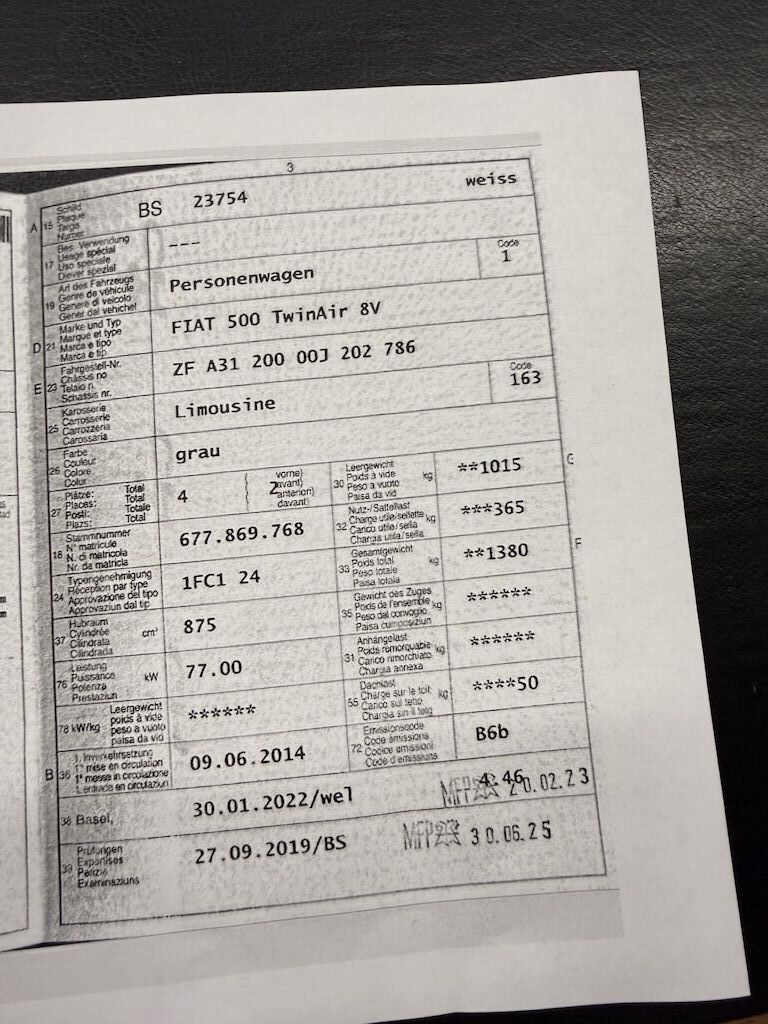 3
A 15 Schild Plaque Targa Numer BS 23754 weiss
17 Bes. Verwendung Usage spécial Uso speciale Diever spezial ---
19 Art des Fahrzeugs Genre de véhicule Genere di veicolo Gener dal vehichel Personenwagen Code 1
D 21 Marke und Typ Marque et type Marca e tipo Marca e tip FIAT 500 TwinAir 8V
E 23 Fahrgestell-Nr. Châssis no Telaio n. Schassis nr. ZF A31 200 00J 202 786
25 Karosserie Carrosserie Carrozzeria Carossaria Limousine Code 163
26 Farbe Couleur Colore Colur grau
27 Plätze: Total Places: Total Posti: Totale Plazs: Total 4 ( 2 vorne) avant) anteriori) davant)
30 Leergewicht Poids à vide Peso a vuoto Paisa da vid kg **1015 G
18 Stammnummer N° matricule N. di matricola Nr. da matricla 677.869.768
32 Nutz-/Sattellast Charge utile/sellette Carico utile/sella Chargia utila/sella kg ***365
24 Typengenehmigung Réception par type Approvazione del tipo Approvaziun dal tip 1FC1 24
33 Gesamtgewicht Poids total Peso totale Paisa totala kg **1380 F
37 Hubraum Cylindrée Cilindrata Cilindrada cm³ 875
35 Gewicht des Zuges Poids de l'ensemble Peso del convoglio Paisa cumposiziun kg ******
76 Leistung Puissance Potenza Prestaziun kW 77.00
31 Anhängelast Poids remorquable Carico rimorchiato Chargia annexa kg ******
78 kW/kg Leergewicht poids à vide peso a vuoto paisa da vid ******
55 Dachlast Charge sur le toit Carico sul tetto Chargia sin il tetg kg ****50
B 36 1. Inverkehrsetzung 1re mise en circulation 1a messa in circolazione 1. entrada en circulaziun 09.06.2014
72 Emissionscode Code émissions Codice emissioni Code d'emissiuns B6b
38 Basel, 30.01.2022/wel 4.46 MFP 20.02.23
39 Prüfungen Expertises Perizie Examinaziuns 27.09.2019/BS MFP 30.06.25